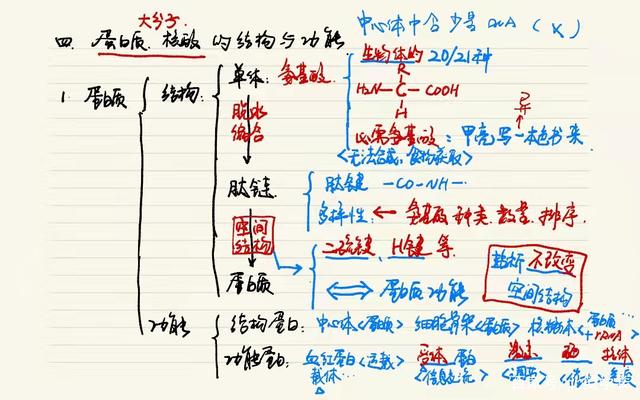 大分子
中心体中含少量 DNA (×)
四. 蛋白质、核酸的结构与功能
生物体的 20/21种
1. 蛋白质
结构:
单体: 氨基酸
R
H₂N—C—COOH
H
脱水
缩合
异
必需氨基酸: 甲壳写一本色书来
<无法合成,食物获取>
肽链
肽键 —CO—NH—
多样性: ← 氨基酸 种类、数量、排序
空间
结构
二硫键、H键 等
蛋白质功能
盐析 不改变
空间结构
蛋白质
功能
结构蛋白: 中心体<蛋白质> 细胞骨架<蛋白质> 核糖体<蛋白质+rRNA>
功能蛋白: 血红蛋白<运载> 受体蛋白 激素 酶 抗体
载体 <信息交流> <调节>